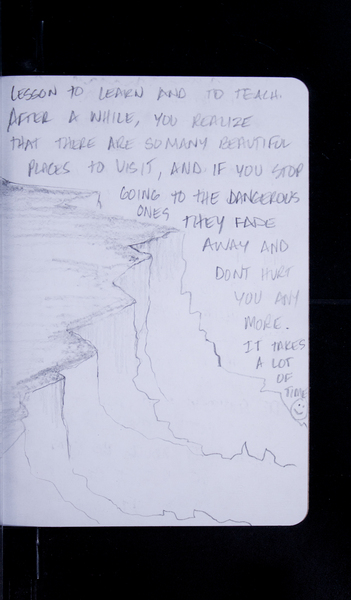 LESSON TO LEARN AND TO TEACH.
AFTER A WHILE, YOU REALIZE
THAT THERE ARE SO MANY BEAUTIFUL
PLACES TO VISIT, AND IF YOU STOP
GOING TO THE DANGEROUS
ONES THEY FADE
AWAY AND
DONT HURT
YOU ANY
MORE.
IT TAKES
A LOT
OF
TIME